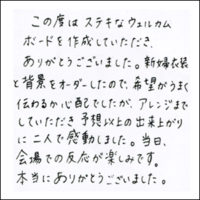 この度は ステキなウェルカム
ボードを作成していただき、
ありがとうございました。新婦衣装
と背景をオーダーしたので、希望がうまく
伝わるか心配でしたが、アレンジまで
していただき 予想以上の出来上がり
に 二人で感動しました。当日、
会場での反応が楽しみです。
本当にありがとうございました。